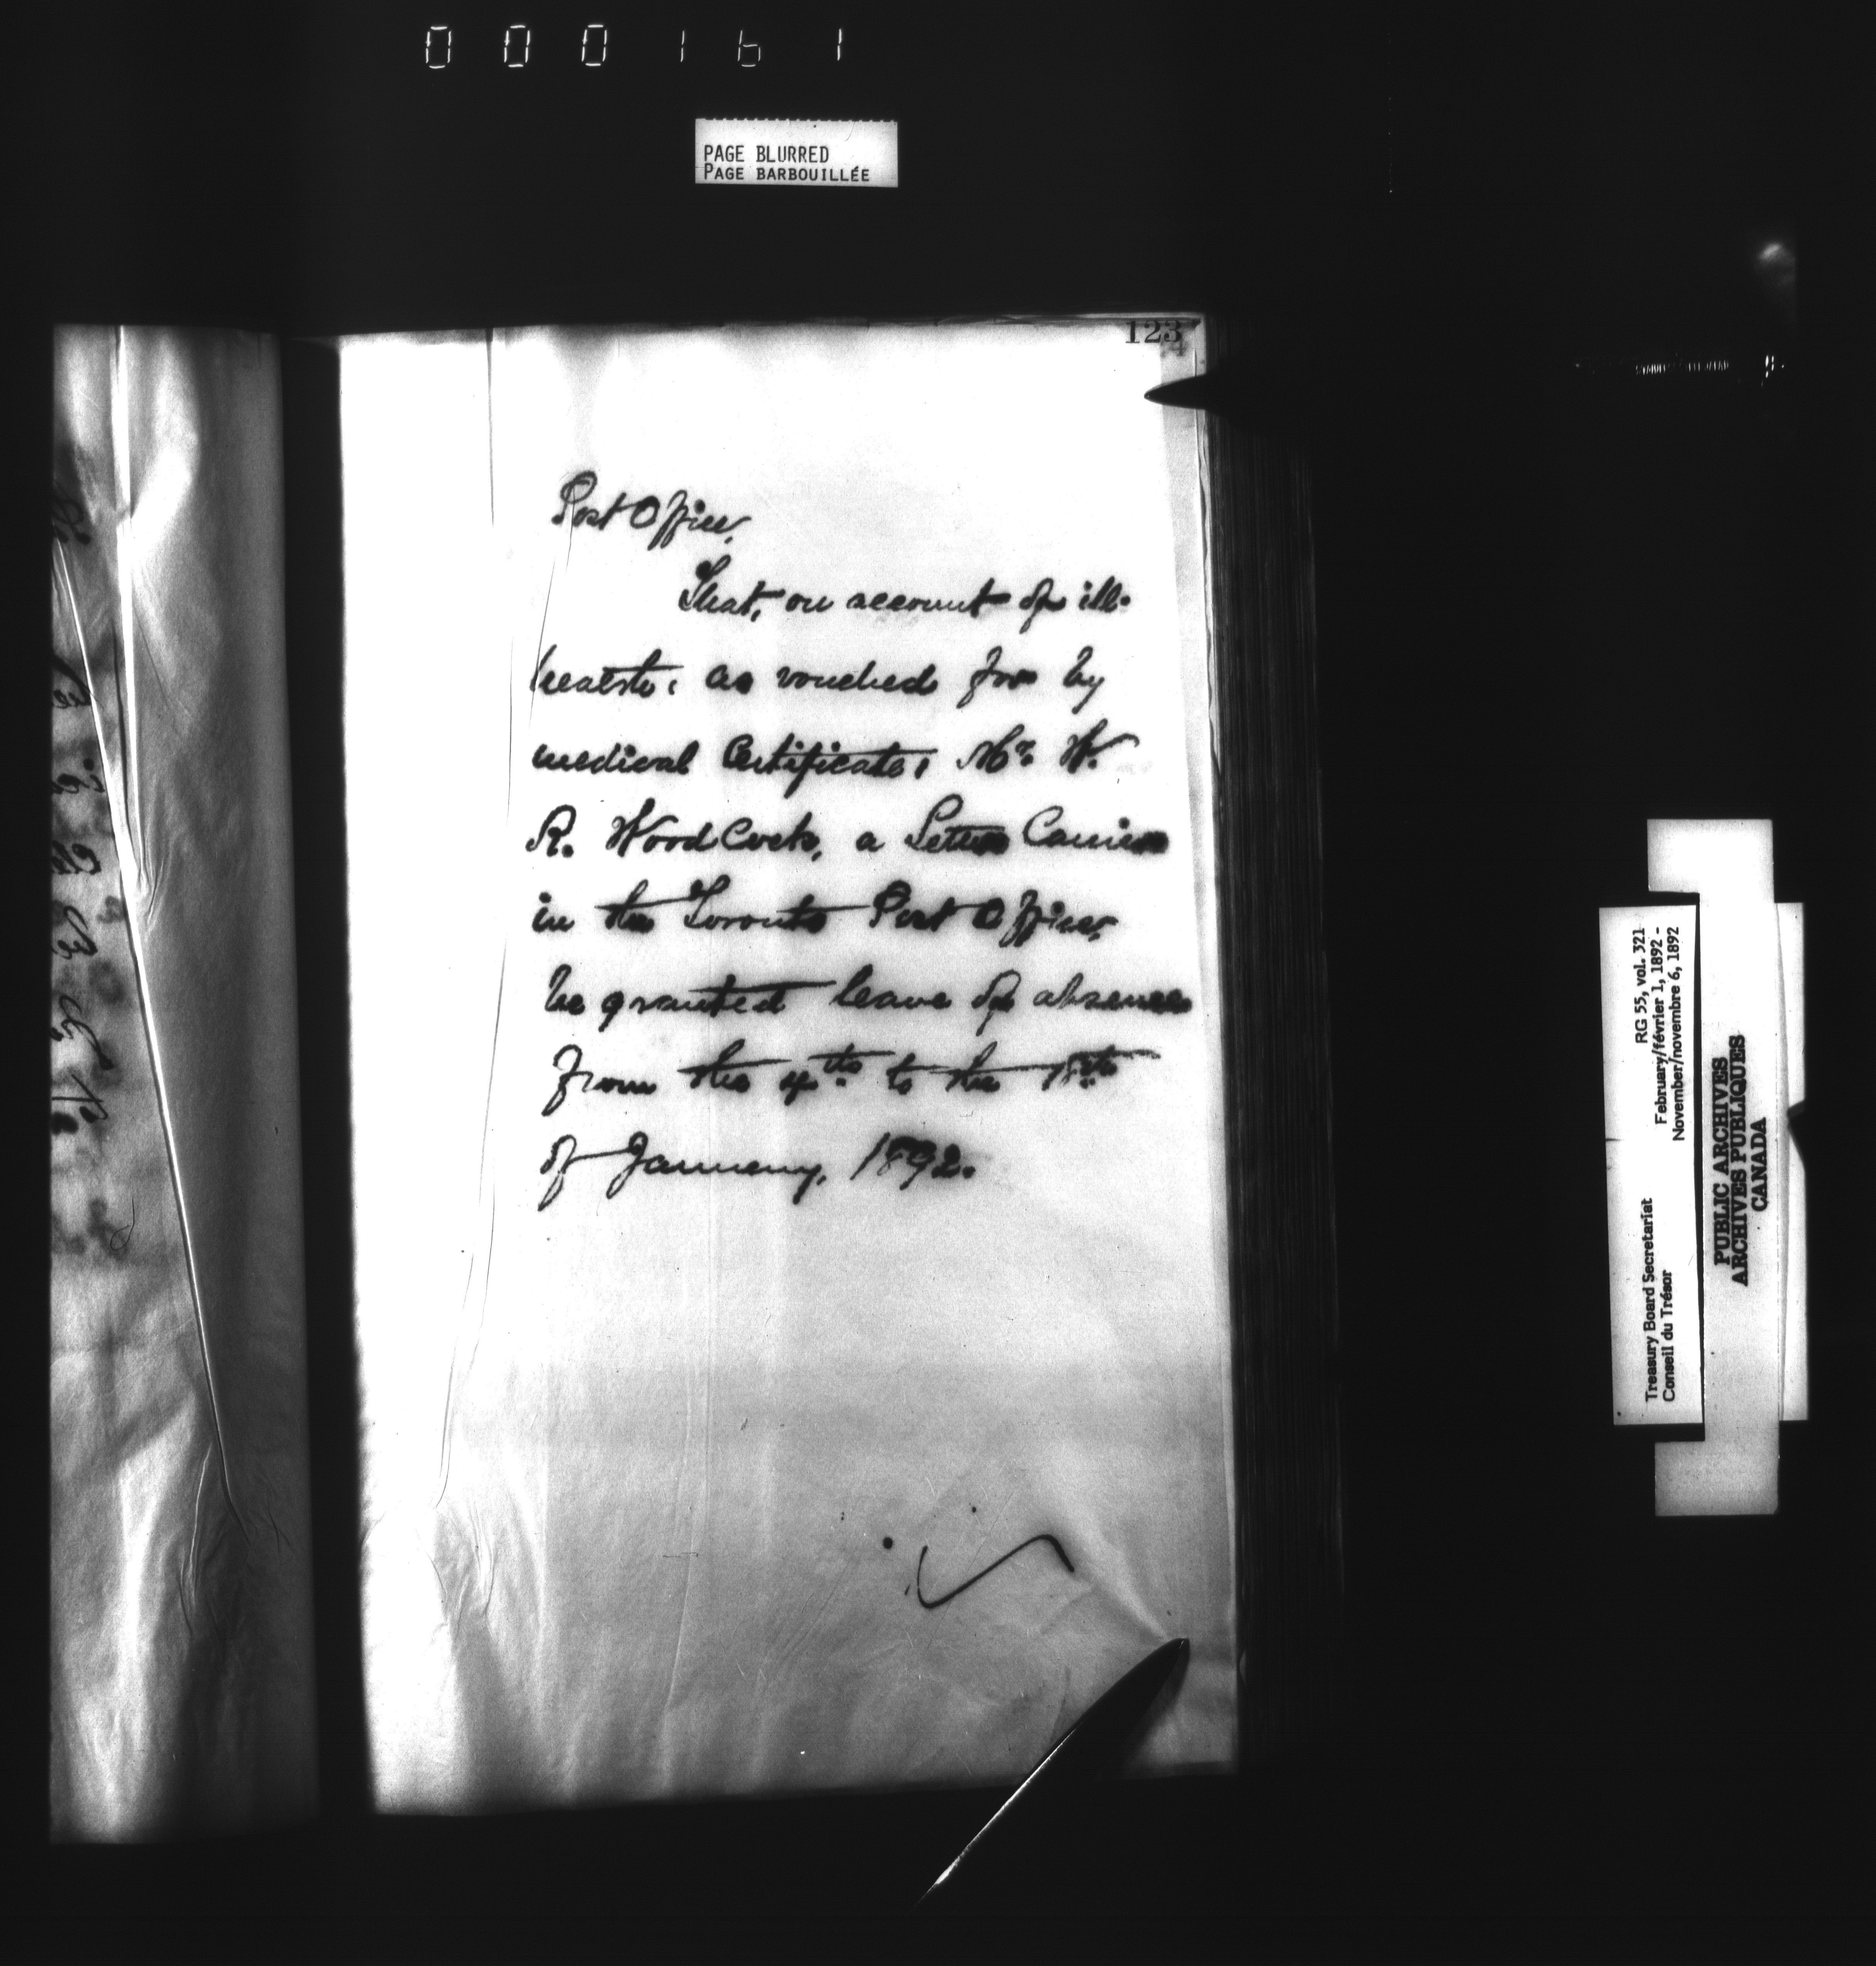 000161
PAGE BLURRED
PAGE BARBOUILLÉE
123
Post Office,
That, on account of ill-
health, as vouched for by
medical Certificate, Mr. W.
R. Woodcock, a Letter Carrier
in the Toronto Post Office,
be granted leave of absence
from the 4th to the 18th
of January, 1892.
Treasury Board Secretariat RG 55, vol. 321
Conseil du Trésor February/février 1, 1892 -
November/novembre 6, 1892
PUBLIC ARCHIVES
ARCHIVES PUBLIQUES
CANADA